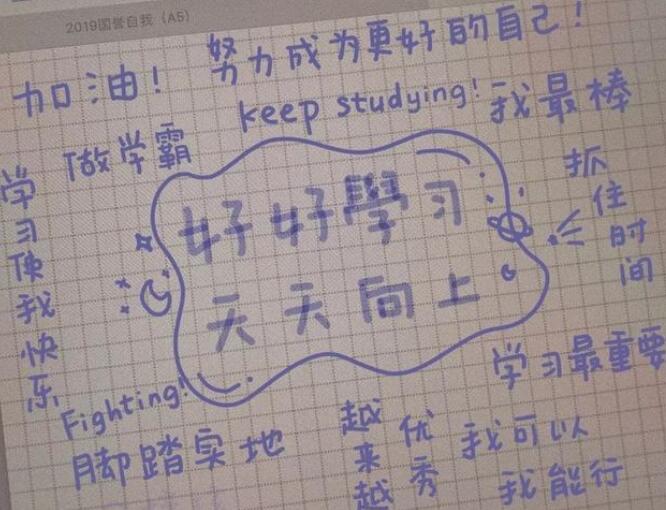 2019国誉自我（A5）
加油！
努力成为更好的自己！
keep studying!
我最棒
做学霸
学习使我快乐
抓住时间
好好學习
天天向上
学习最重要
Fighting!
脚踏实地
越来越
优秀
我可以
我能行